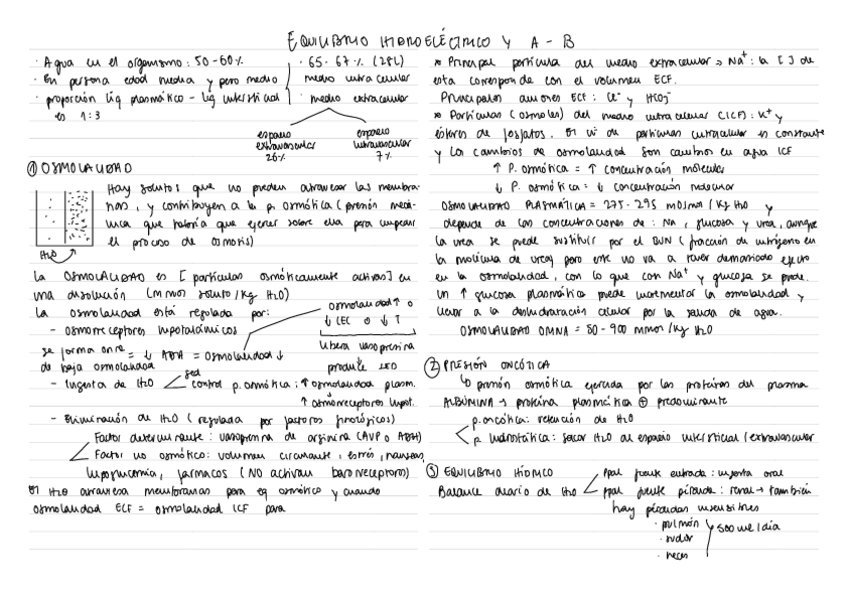 EQUILIBRIO HIDROELÉCTRICO Y A - B
· Agua en el organismo: 50-60%
· En persona edad media y peso medio
· proporción líq plasmático - líq intersticial
es 1:3
· 65-67% (28L)
medio intracelular
· medio extracelular
espacio extravascular 26%
espacio intravascular 7%
① OSMOLALIDAD
Hay solutos que no pueden atravesar las membra-
nas, y contribuyen a la p. osmótica (presión mecá-
nica que habría que ejercer sobre ella para impedir
el proceso de osmosis)
H2O
La OSMOLALIDAD es [partículas osmóticamente activas] en
una disolución (mmos soluto/kg H2O)
La osmolalidad está regulada por:
- osmorreceptores hipotalámicos
osmolalidad ↑ o
↓ LEC o ↓ T
libera vasopresina
produce sed
se forma orina = ↓ ADH = osmolalidad ↓
de baja osmolalidad
- Ingesta de H2O
sed
control p. osmótica: ↑ osmolalidad plasm.
↑ osmorreceptores hipot.
- Eliminación de H2O (regulada por factores fisiológicos)
Factor determinante: vasopresina de arginina (AVP o ADH)
Factor no osmótico: volumen circulante, estrés, nauseas,
hipoglucemia, fármacos (NO activan baroreceptores)
El H2O atraviesa membranas para eq osmótico y cuando
osmolalidad ECF = osmolalidad ICF para
* Principal partícula del medio extracelular → Na+: la [ ] de
esta corresponde con el volumen ECF.
Principales aniones ECF: Cl- y HCO3-
* Partículas (osmoles) del medio intracelular (ICF): K+ y
ésteres de fosfatos. El nº de partículas intracelular es constante
y los cambios de osmolalidad son cambios en agua ICF
↑ P. osmótica = ↑ concentración molecular
↓ P. osmótica = ↓ concentración molecular
OSMOLALIDAD PLASMÁTICA = 275-295 mOsmol/kg H2O y
depende de las concentraciones de: Na, glucosa y urea, aunque
la urea se puede sustituir por el BUN (fracción de nitrógeno en
la molécula de urea) pero este no va a tener demasiado efecto
en la osmolalidad, con lo que con Na+ y glucosa se puede.
Un ↑ glucosa plasmática puede incrementar la osmolalidad y
llevar a la deshidratación celular por la salida de agua.
OSMOLALIDAD ORINA = 50-900 mmos/kg H2O
② PRESIÓN ONCÓTICA
↳ presión osmótica ejercida por las proteínas del plasma
ALBÚMINA → proteína plasmática ⊕ predominante
p. oncótica: retención de H2O
p. hidrostática: sacar H2O al espacio intersticial/extravascular
③ EQUILIBRIO HÍDRICO
Balance diario de H2O
ppal fuente entrada: ingesta oral
ppal fuente pérdida: renal → también
hay pérdidas insensibles
· pulmón
· sudor
· heces
500 ml/día